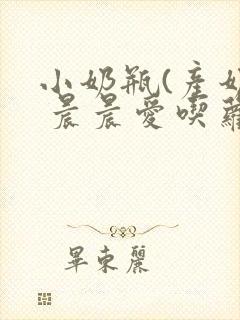 小奶瓶(產奶
晨晨愛喫蘿
畢束麗